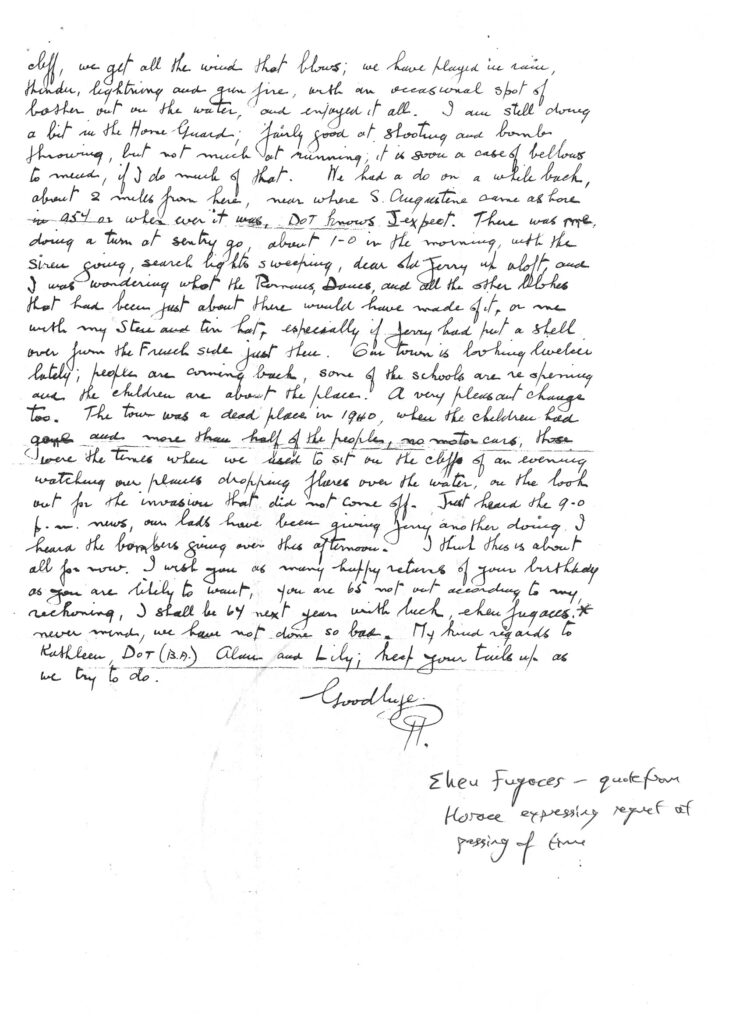 cliff, we get all the wind that blows; we have played in rain,
thunder, lightning and gun fire, with an occasional spot of
bother out on the water, and enjoyed it all. I am still doing
a bit in the Home Guard; fairly good at shooting and bomb
throwing, but not much at running; it is soon a case of bellows
to mend, if I do much of that. We had a do on a while back,
about 2 miles from here, near where S. Augustine came ashore
in 954 or when ever it was, DOT knows I expect. There was me,
doing a turn at sentry go, about 1-0 in the morning, with the
siren going, search lights sweeping, dear old Jerry up aloft, and
I was wondering what the Romans, Danes, and all the other blokes
that had been just about there would have made of it, or me
with my Sten and tin hat, especially if Jerry had put a shell
over from the French side just then. Our town is looking livelier
lately; people are coming back, some of the schools are re opening
and the children are about the place. A very pleasant change
too. The town was a dead place in 1940, when the children had
gone and more than half of the people, no motor cars, those
were the times when we used to sit on the cliffs of an evening
watching our planes dropping flares over the water, on the look
out for the invasion that did not come off. Just heard the 9-0
p.m. news, our lads have been giving Jerry another doing. I
heard the bombers going over this afternoon. I think this is about
all for now. I wish you as many happy returns of your birthday
as you are likely to want, you are 65 not out according to my
reckoning, I shall be 64 next year with luck, eheu fugaces,*
never mind, we have not done so bad. My kind regards to
Kathleen, DOT (B.A.) Alan and Lily; keep your tails up as
we try to do.
Goodbye.
H.
Eheu Fugaces - quote from
Horace expressing regret at
passing of time